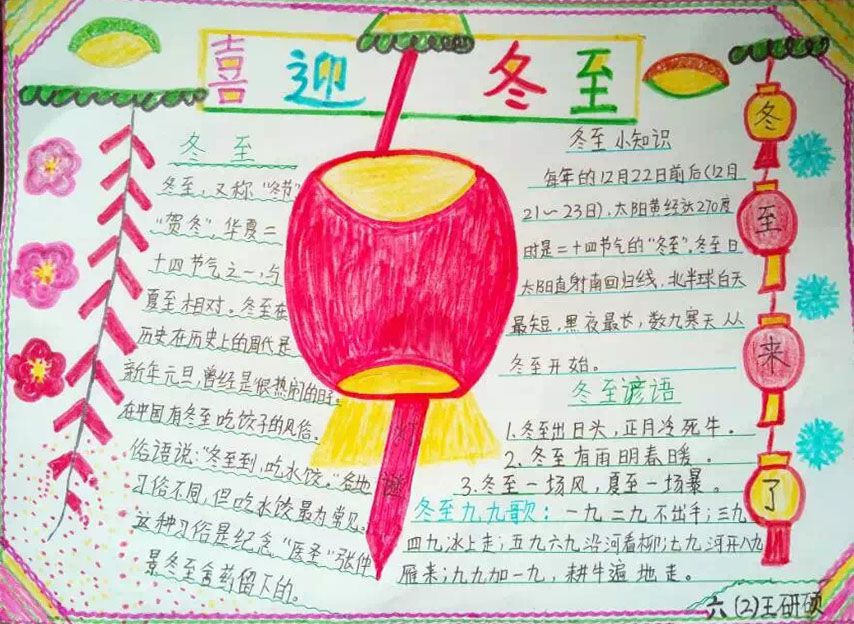 喜迎冬至
冬至
冬至，又称“冬节”
“贺冬”华夏二
十四节气之一，与
夏至相对。冬至在
历史在历史上的周代是
新年元旦，曾经是很热闹的日子。
在中国有冬至吃饺子的风俗。
俗语说：“冬至到，吃水饺。”各地
习俗不同，但吃水饺最为常见。
这种习俗是纪念“医圣”张仲
景冬至舍药留下的。
灯
谜
冬至小知识
每年的12月22日前后(12月
21～23日)，太阳黄经达270度
时是二十四节气的“冬至”。冬至日
太阳直射南回归线，北半球白天
最短，黑夜最长，数九寒天从
冬至开始。
冬至谚语
1.冬至出日头，正月冷死牛。
2.冬至有雨明春暖。
3.冬至一场风，夏至一场暴。
冬至九九歌：一九二九不出手；三九
四九冰上走；五九六九沿河看柳；七九河开八九
雁来；九九加一九，耕牛遍地走。
冬
至
来
了
六(2)王研硕